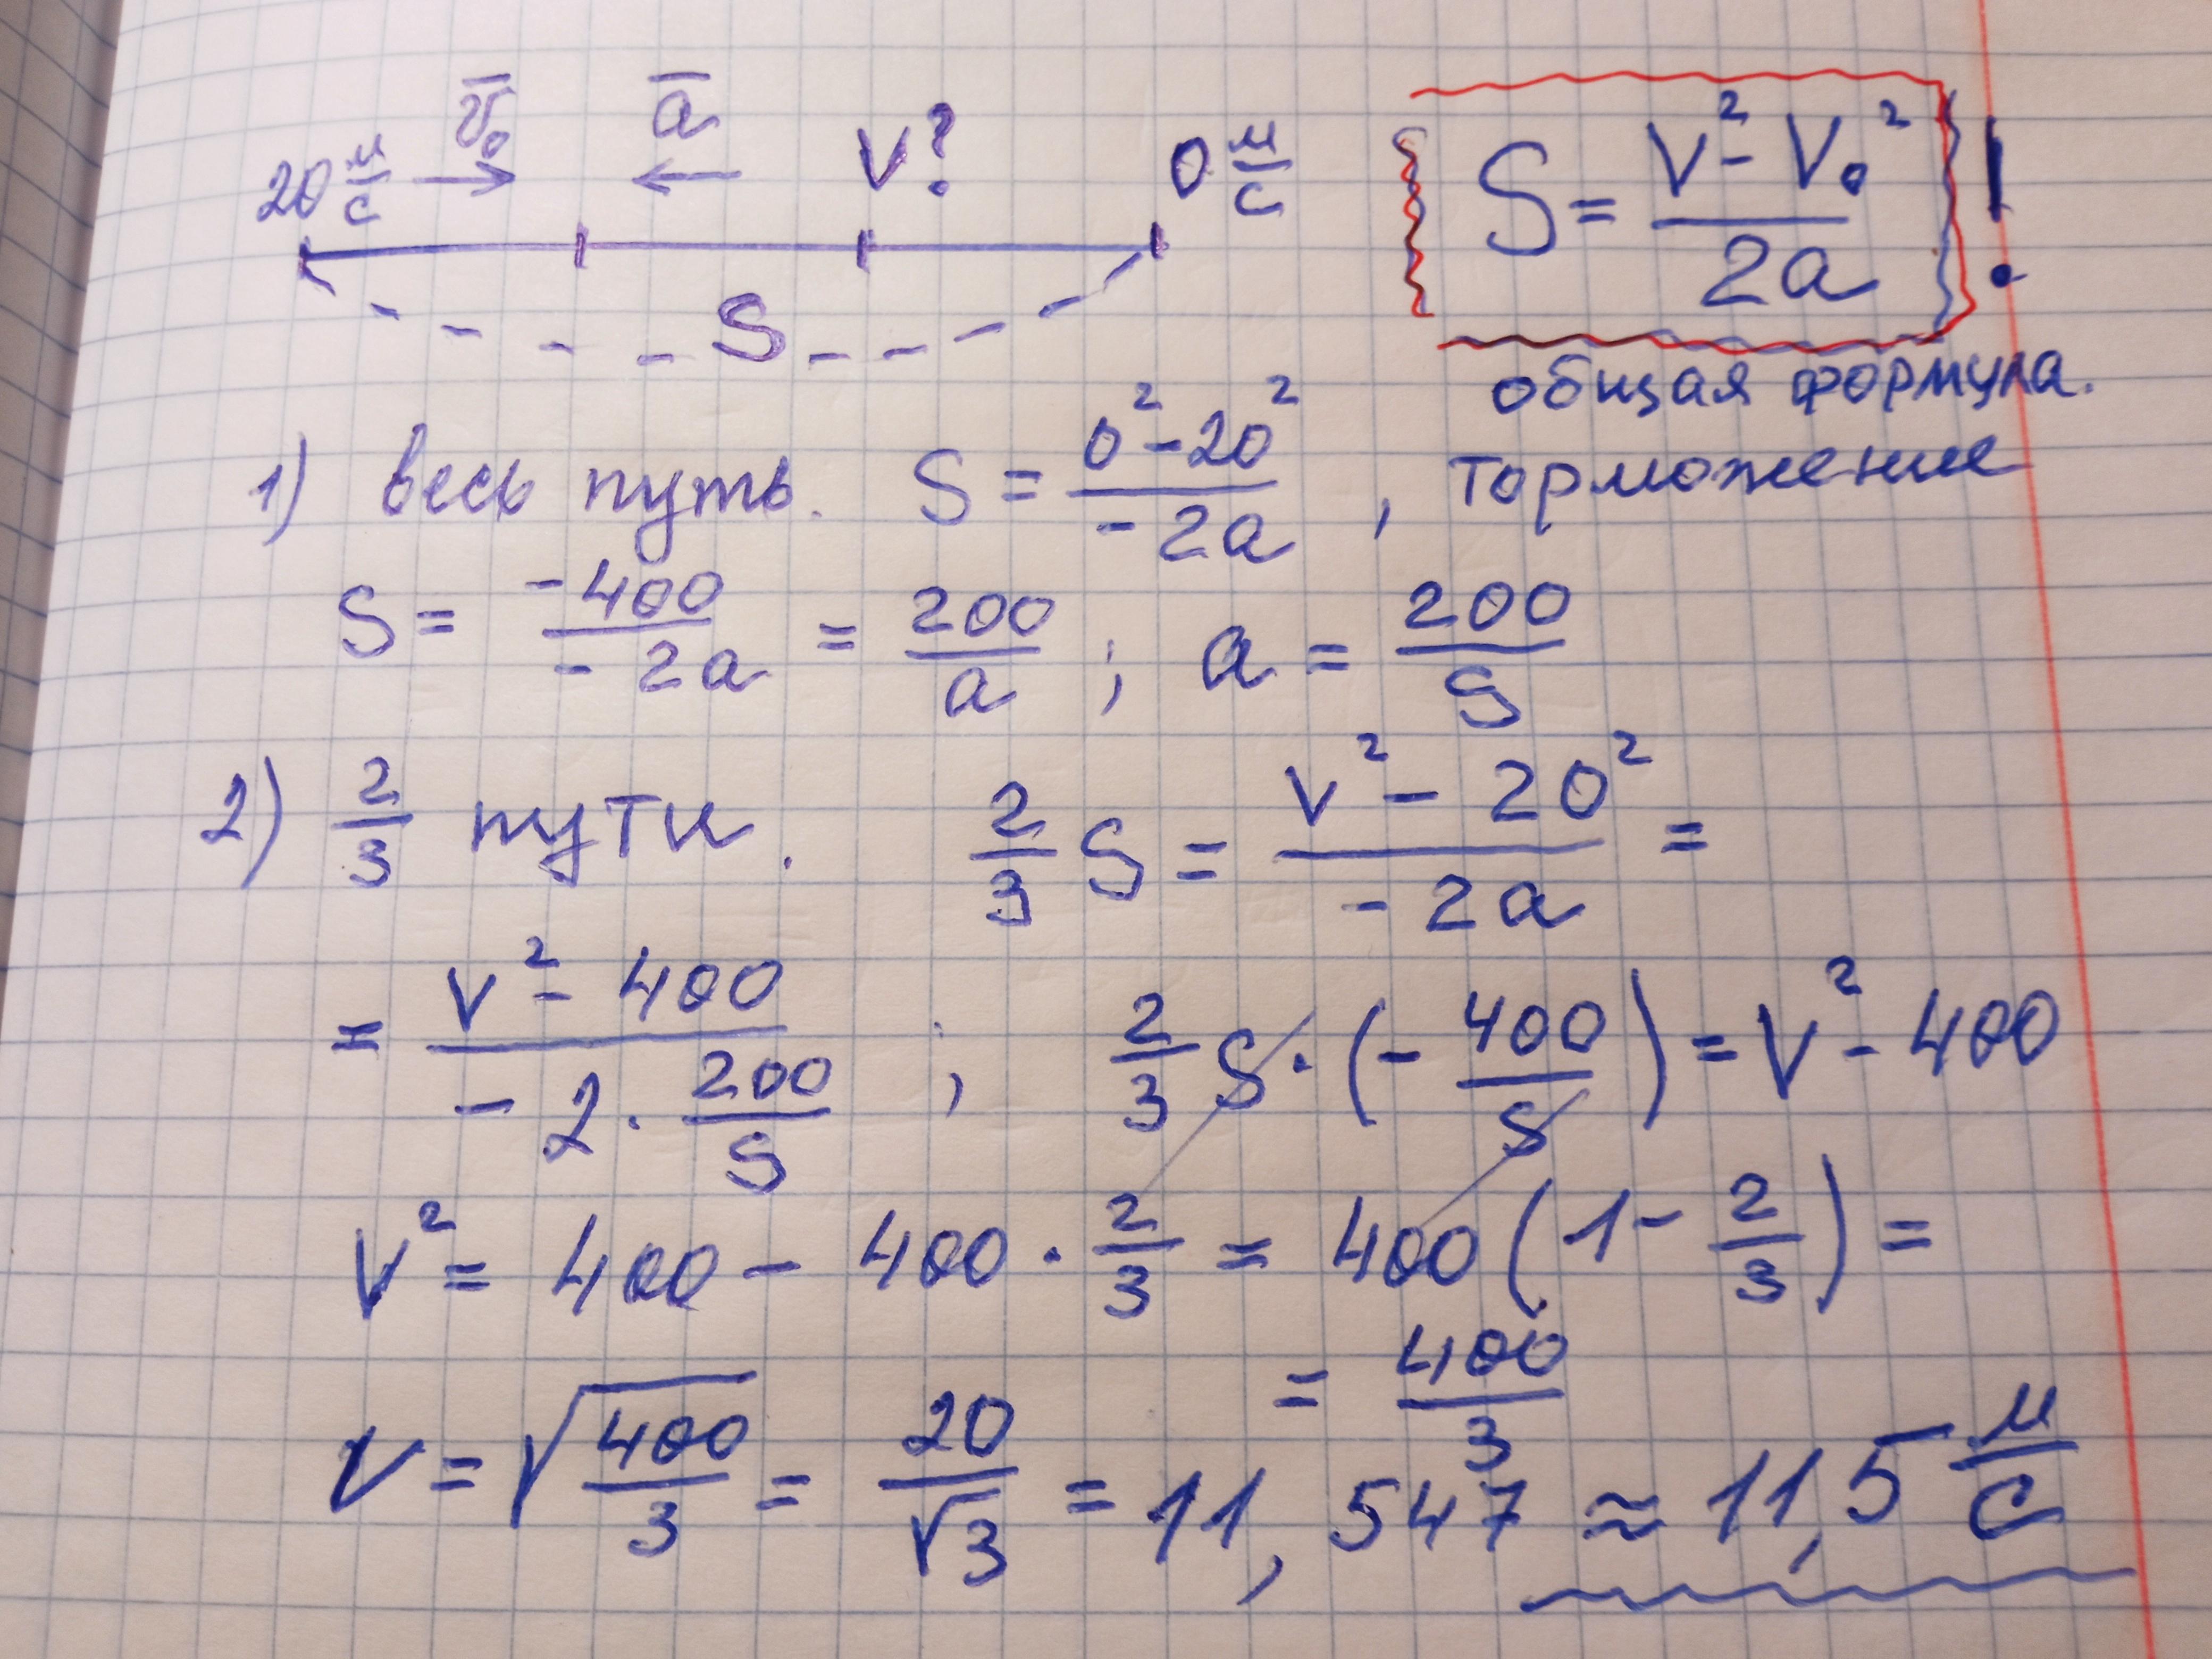 20 м/с v̅₀ → a̅ ← V? 0 м/с
S
S = (V² - V₀²)/(2a) !
общая формула.
1) весь путь. S = (0² - 20²)/(-2a), торможение
S = (-400)/(-2a) = 200/a ; a = 200/S
2) 2/3 пути. 2/3 S = (V² - 20²)/(-2a) =
= (V² - 400)/(-2 · 200/S) ; 2/3 S · (- 400/S) = V² - 400
V² = 400 - 400 · 2/3 = 400 (1 - 2/3) =
= 400/3
V = √(400/3) = 20/√3 = 11,547 ≈ 11,5 м/с